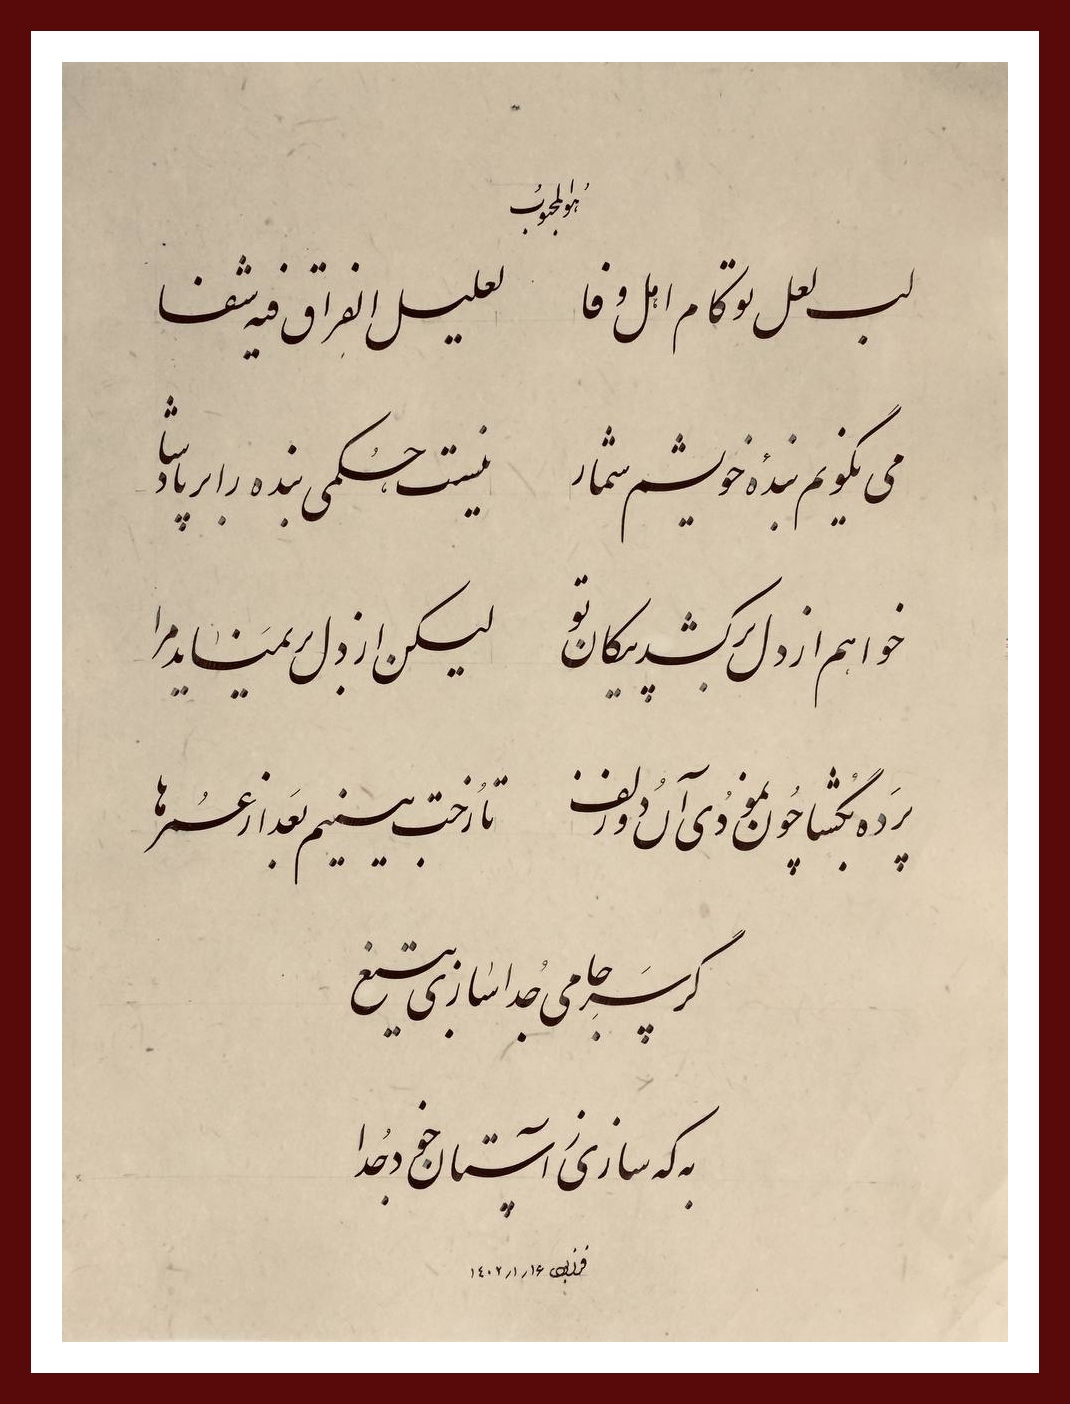 هُوالمحبوبُ
لب لعل تو کام اهل وفا لعلیل الفراق فیه شفا
می نگویم بندهٔ خویشم شمار نیست حُکمی بنده را بر پادشا
خواهم از دل برکشد پیکان تو لیکن از دل برنمیَناید مرا
پرَده بگشا چُون نمودُی آن دُو زلف تا رُخت بینیم بعَد از عُمرها
گر سپَر جامی جُدا سازی بتیغ
به که سازی ز آستان خود جُدا
۱۴۰۲/۱/۱۶